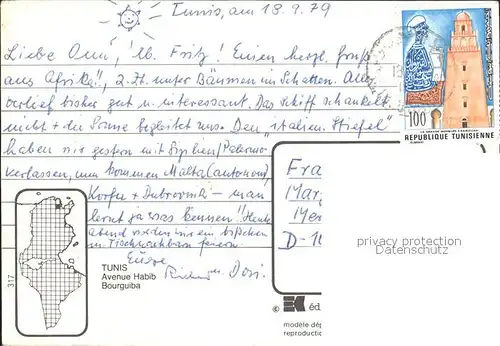 Tunis, am 18.9.79
Liebe Omi, lb. Fritz! Einen herzl. Gruß
aus Afrika!, z.Zt. unter Bäumen im Schatten. Alles
verlief bisher gut u. interessant. Das Schiff schaukelt
nicht + die Sonne begleitet uns. Den „italien. Stiefel"
haben wir gestern mit Sizilien/Palermo
verlassen, nun kommen Malta (autonom)
Korfu + Dubrovnik – man
lernt ja was kennen!! Heute
abend werden wir ein bißchen
m. Tischnachbarn feiern.
Eure
Dori.
100
REPUBLIQUE TUNISIENNE
Fra
Mar
Me
D-1
privacy protection
317
TUNIS
Avenue Habib
Bourguiba
© EK éd
modèle dép
reproductio